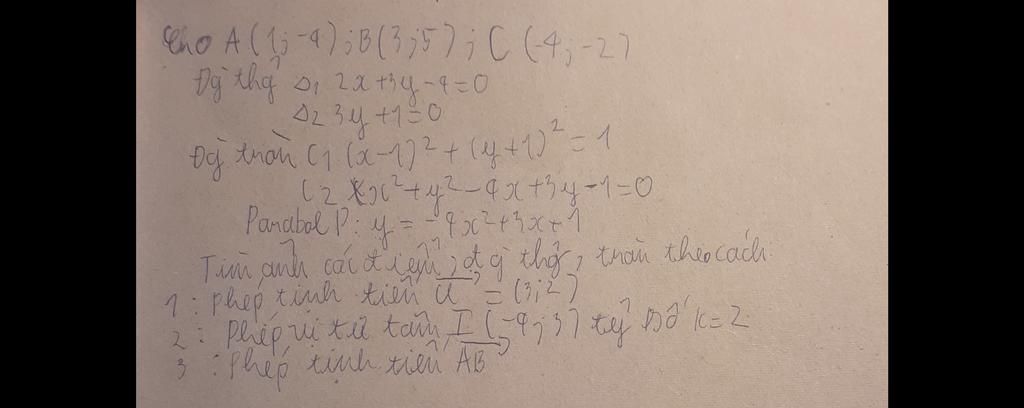 Cho A(1;-4);B(3;5);C(-4;-2)
Đg thg Δ1 2x+3y-4=0
Δ2 3y+1=0
Đg tròn C1 (x-1)²+(y+1)²=1
C2 x²+y²-4x+3y-1=0
Parabol P: y=-4x²+3x+1
Tìm ảnh các điểm, đg thg, tròn theo cách:
1: Phép tịnh tiến u=(3;2)
2: Phép vị tự tâm I(-4;3) tỷ số k=2
3: Phép tịnh tiến AB